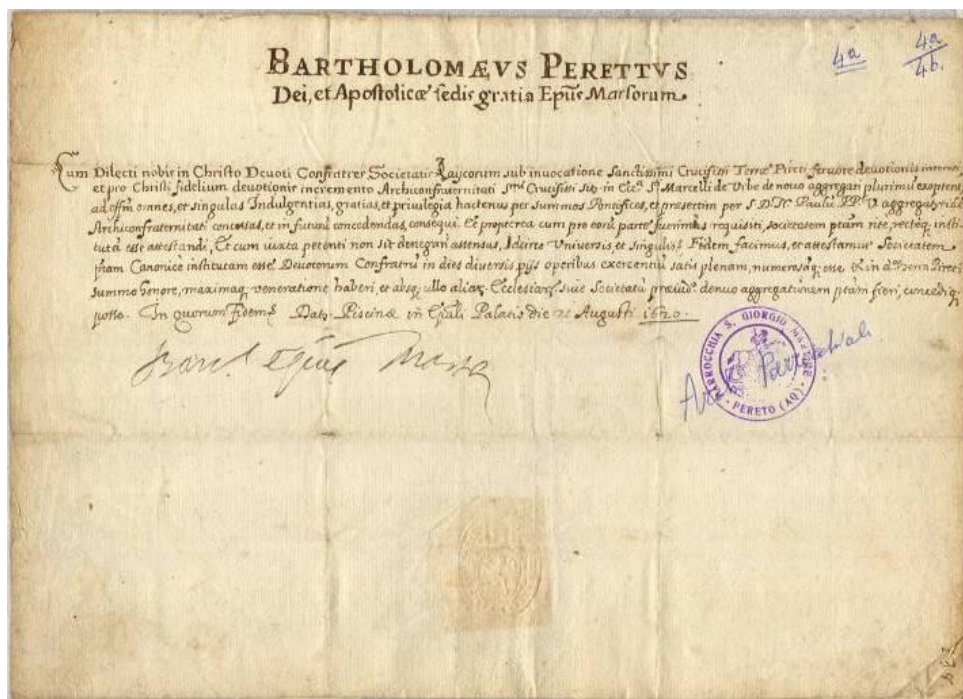 BARTHOLOMÆVS PERETTVS
4a
4a
4b.
Dei, et Apostolicæ sedis gratia Epũs Marsorum
Cum Dilecti nobis in Christo Devoti Confratres Societatis Laycorum sub invocatione Sanctissimi Crucifixi Terræ Pireti fervore devotionis
et pro Christi fidelium devotionis incremento Archiconfraternitati Crucifixi sitæ in Ecc. S. Marcelli de Urbe de novo aggregari plurimũ exoptent,
ad omnes, et singulas Indulgentias, gratias, et privilegia hactenus per summos Pontifices, et præsertim per S. D. N. Paulũ PP. V
Archiconfraternitati concessas, et in futurũ concedendas, consequi. Et propterea cum pro eorũ parte fuerimus requisiti, societatem ptam rite, recteq; insti-
tutã esse attestandi, Et cum iuxta petenti non sit denegandus assensus, Idcirco Universis et singulis Fidem facimus, et attestamur Societatem
Canonicè institutam esse Devotorum Confratrũ in dies diversis pijs operibus exercentiũ satis plenam, numerosaq; esse Pireti
summo honore, maximaq; veneratione haberi, et absq; ullo aliar. Ecclesiar. sive Societatũ denuo aggregationem ptam fieri, concediq;
posse. In quorum fidem Dat. Piscinæ in Palatio die Augusti 1620.
PARROCCHIA S. GIORGIO MARTIRE
PERETO (AQ)
Parrocchiale